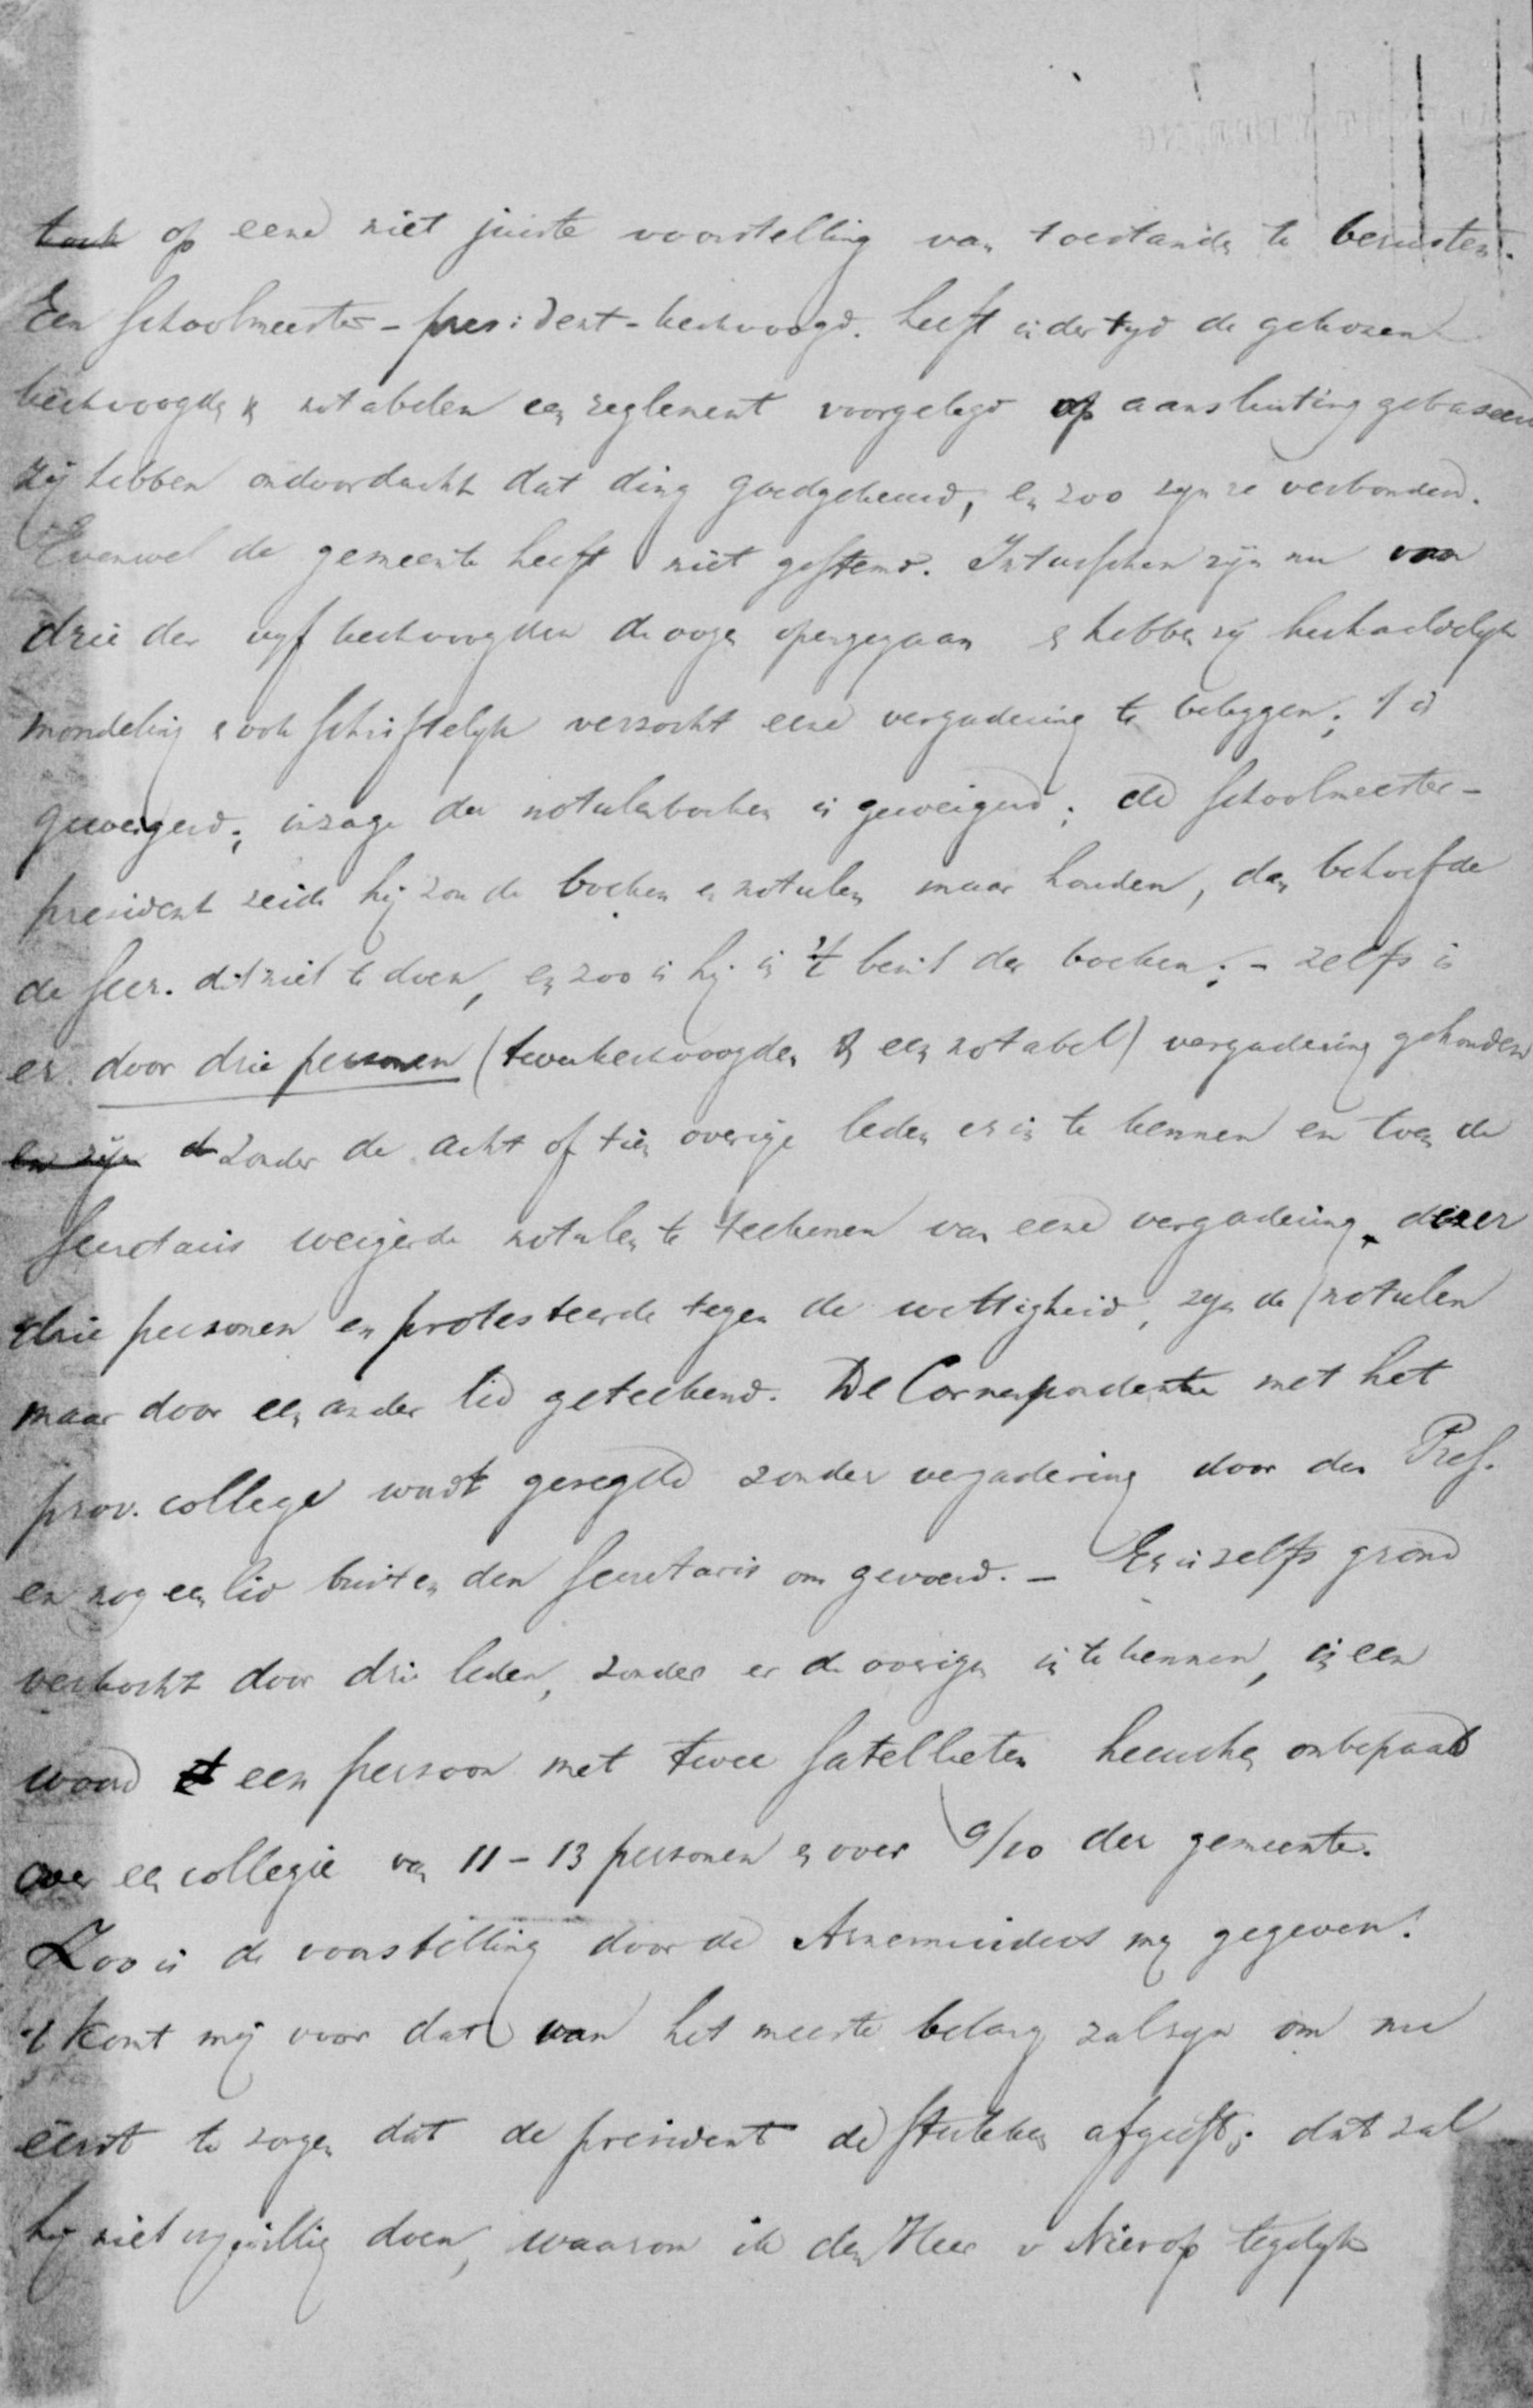 toch op eene niet juiste voorstelling van toestanden te berusten.
Een schoolmeester-president-kerkvoogd. heeft indertyd de gekozen
kerkvoogden & notabelen een reglement voorgelegd op aansluiting gebaseerd
zij hebben ondoordacht dat ding goedgekeurd, en zoo zyn ze verbonden.
Evenwel de gemeente heeft niet gestemd. Intusschen zijn nu van
drie der vyf kerkvoogden de oogen opengegaan & hebben zij herhaaldelyk
mondeling & ook schriftelyk verzocht eene vergadering te beleggen; 't is
geweigerd; inzage der notulenboeken is geweigerd; de schoolmeester-
president zeide hij zou de boeken en notulen maar houden, dan behoefde
de secr. dit niet te doen, en zoo is hij in 't bezit der boeken; - zelfs is
er door drie personen (twee kerkvoogden & een notabel) vergadering gehouden
en zijn zonder de acht of tien overige leden er in te kennen en toen de
secretaris weigerde notulen te teekenen van eene vergadering dezer
drie personen en protesteerde tegen de wettigheid, zyn de notulen
maar door een ander lid geteekend. De Correspondentie met het
prov. college wordt geregeld zonder vergadering door den Pres.
en nog een lid buiten den secretaris om gevoerd. - Er is zelfs grond
verkocht door drie leden, zonder er de overigen in te kennen, in een
woord een persoon met twee satellieten heerschen onbepaald
over een collegie van 11-13 personen en over 9/10 der gemeente.
Zoo is de voorstelling door de Arnemuiders my gegeven.
't komt mij voor dat van het meeste belang zal zyn om nu
eerst te zorgen dat de president de stukken afgeeft; dat zal
hij niet vrijwillig doen, waarom ik den Heer v Nierop tegelyk